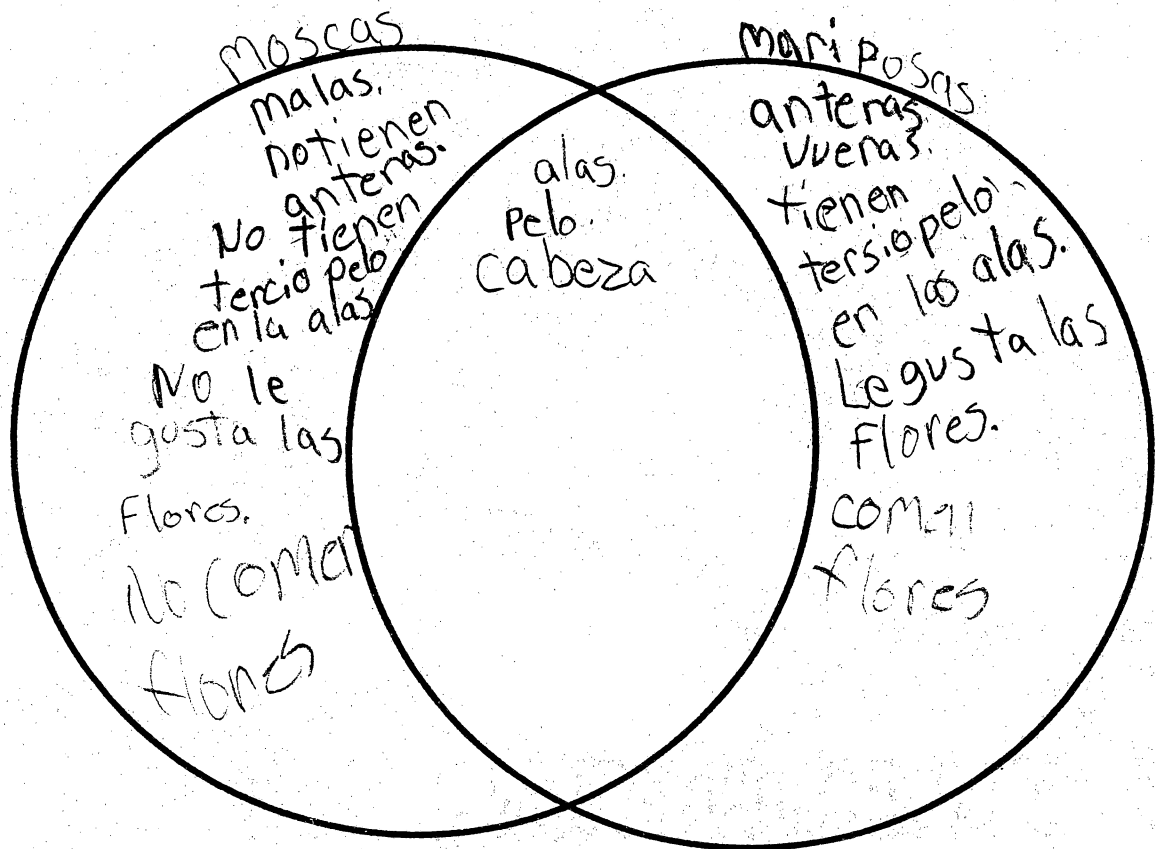 moscas
malas.
no tienen
anteras.
No tienen
tercio pelo
en la alas
No le
gusta las
Flores.
No comen
flores
alas.
Pelo.
cabeza
mariposas
anteras
vuenas.
tienen
tersio pelo
en las alas.
Le gusta las
flores.
comen
flores